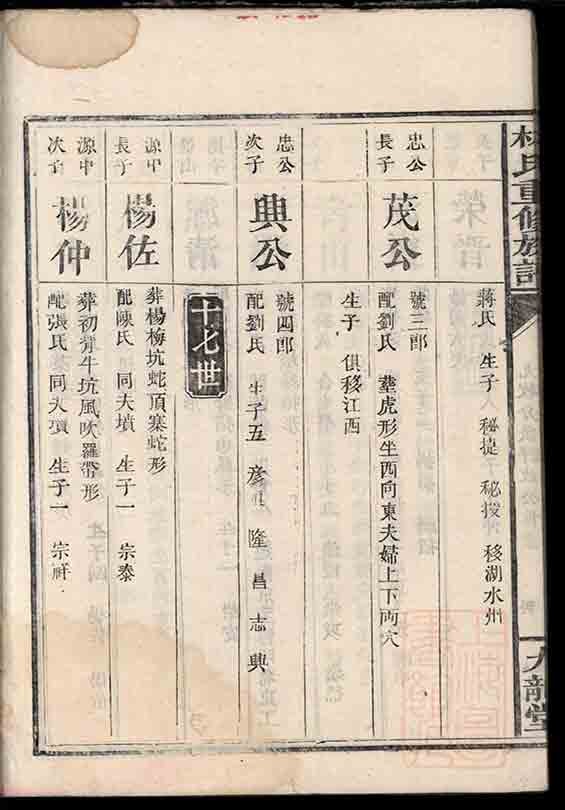 林氏重修族譜
九龍堂
蔣氏 生子 秘捷 秘授 移湖水州
忠公
長子
茂公
號三郎
配劉氏 塟虎形坐西向東夫婦上下両穴
生子 俱移江西
忠公
次子
興公
號四郎
配劉氏 生子五 彦 隆 昌 志 興
十七世
源中
長子
楊佐
葬楊梅坑蛇頂寨蛇形
配陳氏 同夫墳 生子一 宗泰
源中
次子
楊仲
葬初背牛坑風吹羅帶形
配張氏 同夫墳 生子一